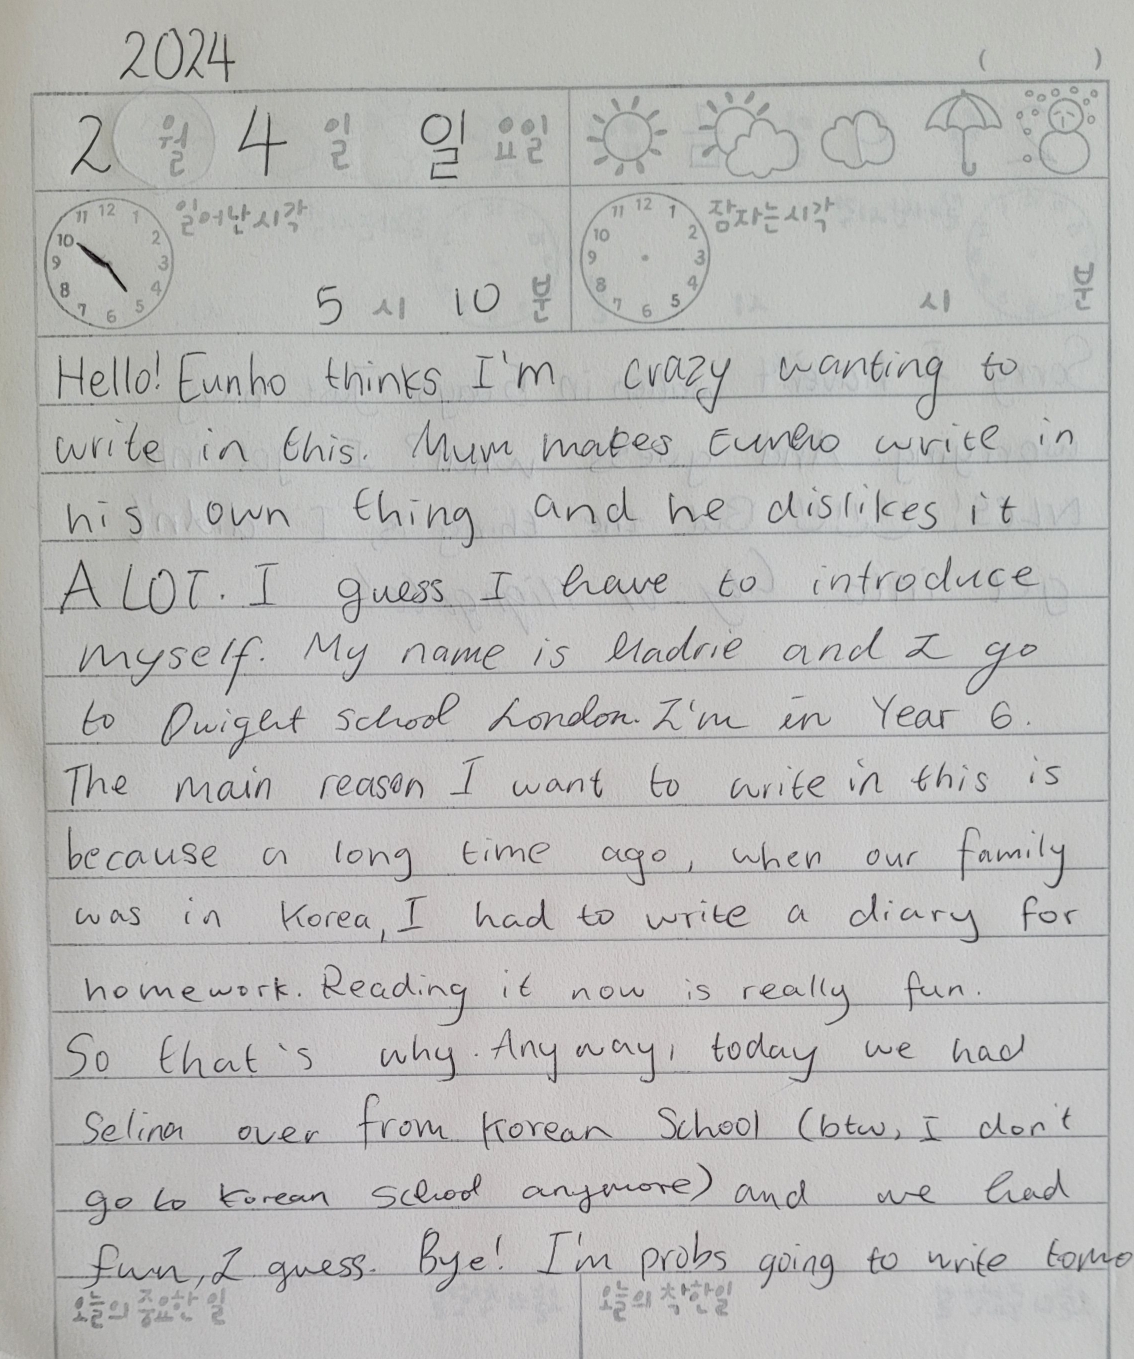 2024 ( )
2 월 4 일 일 요일
11 12 1 일어난시각 11 12 1 잠자는시각
10 2 10 2
9 3 9 3
8 4 8 4
7 6 5 7 6 5
5 시 10 분 시 분
Hello! Eunho thinks I'm crazy wanting to
write in this. Mum makes Eunho write in
his own thing and he dislikes it
A LOT. I guess I have to introduce
myself. My name is and I go
to Dwight school London. I'm in Year 6.
The main reason I want to write in this is
because a long time ago, when our family
was in Korea, I had to write a diary for
homework. Reading it now is really fun.
So that's why. Anyway, today we had
Selina over from Korean School (btw, I don't
go to Korean school anymore) and we had
fun, I guess. Bye! I'm probs going to write tomo
오늘의 중요한 일 오늘의 착한일